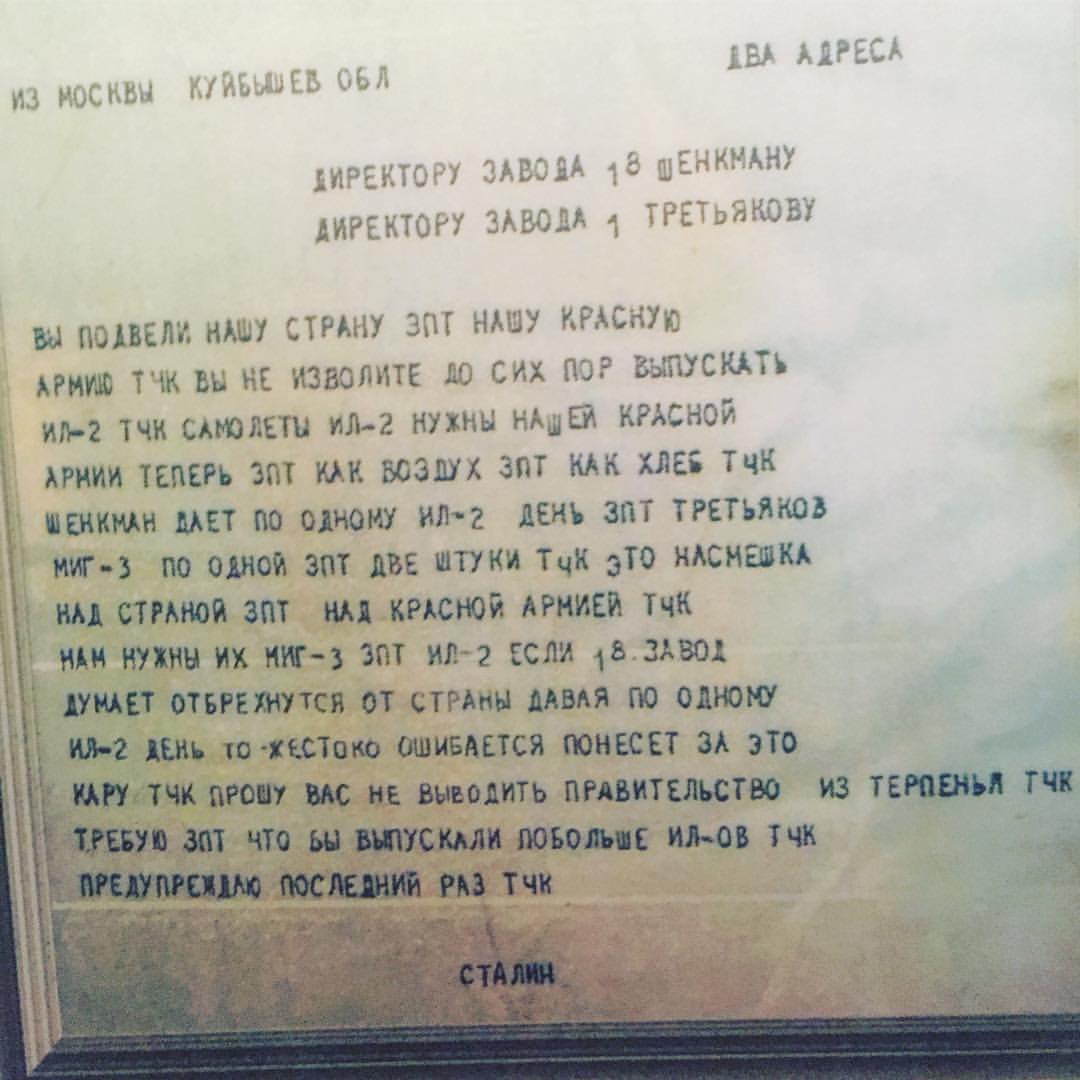 ИЗ МОСКВЫ КУЙБЫШЕВ ОБЛ ДВА АДРЕСА
ДИРЕКТОРУ ЗАВОДА 18 ШЕНКМАНУ
ДИРЕКТОРУ ЗАВОДА 1 ТРЕТЬЯКОВУ
ВЫ ПОДВЕЛИ НАШУ СТРАНУ ЗПТ НАШУ КРАСНУЮ
АРМИЮ ТЧК ВЫ НЕ ИЗВОЛИТЕ ДО СИХ ПОР ВЫПУСКАТЬ
ИЛ-2 ТЧК САМОЛЕТЫ ИЛ-2 НУЖНЫ НАШЕЙ КРАСНОЙ
АРМИИ ТЕПЕРЬ ЗПТ КАК ВОЗДУХ ЗПТ КАК ХЛЕБ ТЧК
ШЕНКМАН ДАЕТ ПО ОДНОМУ ИЛ-2 ДЕНЬ ЗПТ ТРЕТЬЯКОВ
МИГ-3 ПО ОДНОЙ ЗПТ ДВЕ ШТУКИ ТЧК ЭТО НАСМЕШКА
НАД СТРАНОЙ ЗПТ НАД КРАСНОЙ АРМИЕЙ ТЧК
НАМ НУЖНЫ ИХ МИГ-3 ЗПТ ИЛ-2 ЕСЛИ 18.ЗАВОД
ДУМАЕТ ОТБРЕХНУТСЯ ОТ СТРАНЫ ДАВАЯ ПО ОДНОМУ
ИЛ-2 ДЕНЬ ТО ЖЕСТОКО ОШИБАЕТСЯ ПОНЕСЕТ ЗА ЭТО
КАРУ ТЧК ПРОШУ ВАС НЕ ВЫВОДИТЬ ПРАВИТЕЛЬСТВО ИЗ ТЕРПЕНЬЯ ТЧК
ТРЕБУЮ ЗПТ ЧТО БЫ ВЫПУСКАЛИ ПОБОЛЬШЕ ИЛ-ОВ ТЧК
ПРЕДУПРЕЖДАЮ ПОСЛЕДНИЙ РАЗ ТЧК
СТАЛИН